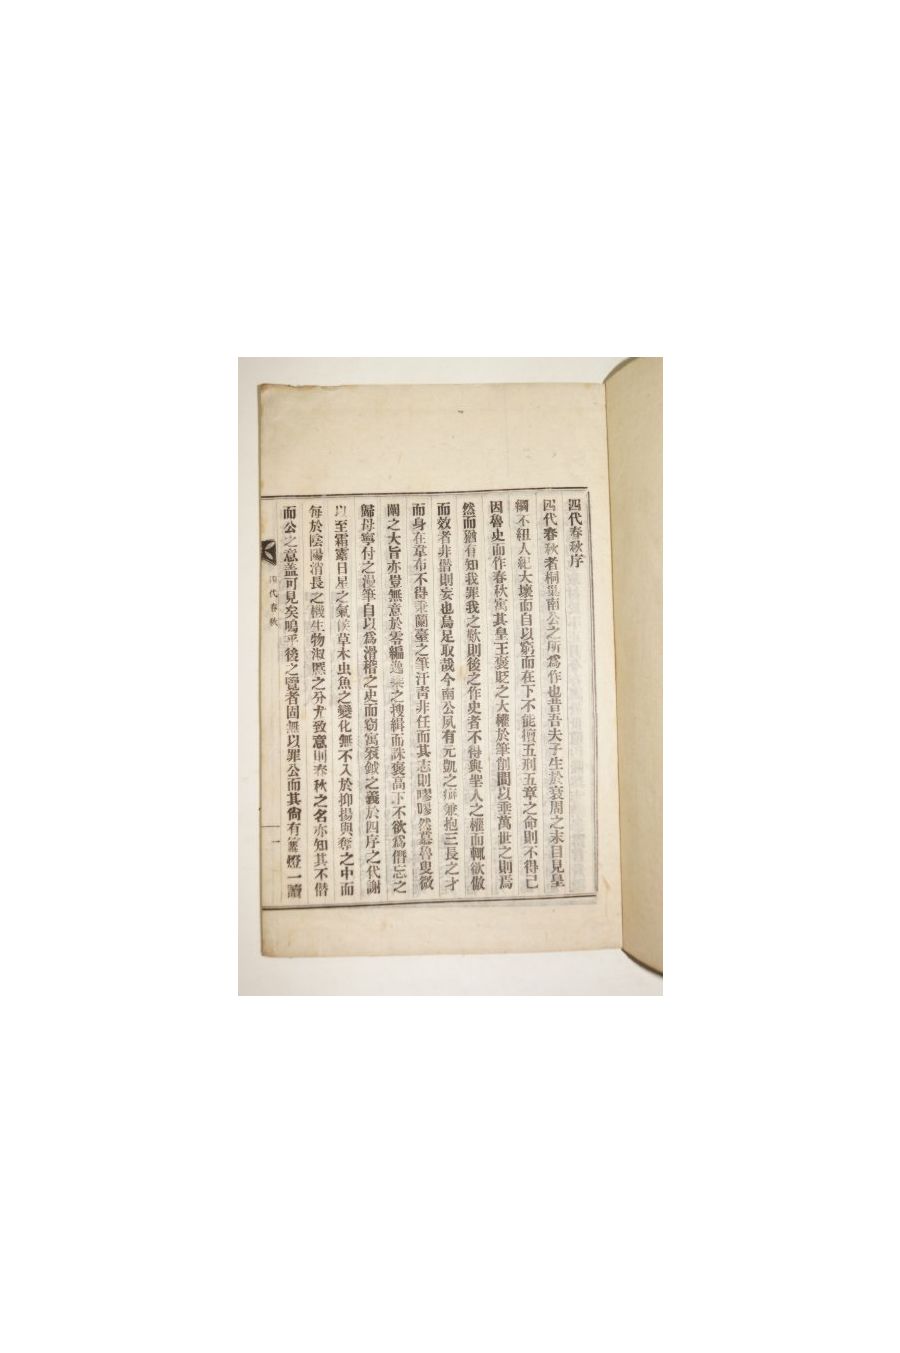 四代春秋序
四代春秋者桐巢南公之所爲作也昔吾夫子生於衰周之末目見皇
綱不紐人紀大壞而自以窮而在下不能擅五刑五章之命則不得已
因魯史而作春秋寓其皇王褒貶之大權於筆削間以垂萬世之則焉
然而猶有知我罪我之歎則後之作史者不得與聖人之權而輒欲倣
而效者非僭則妄也烏足取哉今南公夙有元凱之癖兼抱三長之才
而身在韋布不得秉蘭臺之筆汗靑非任而其志則嘐嘐然慕魯叟微
闡之大旨亦豈無意於零編逸藁之搜緝而誅褒高下不欲爲僭忘之
歸毋寧付之漫筆自以爲滑稽之史而窃寓袞鉞之義於四序之代謝
以至霜露日星之氣候草木虫魚之變化無不入於抑揚與奪之中而
每於陰陽消長之機生物淑慝之分尤致意則春秋之名亦知其不僭
而公之意盖可見矣嗚乎後之覽者固無以罪公而其尙有篝燈一讀
四代春秋
一